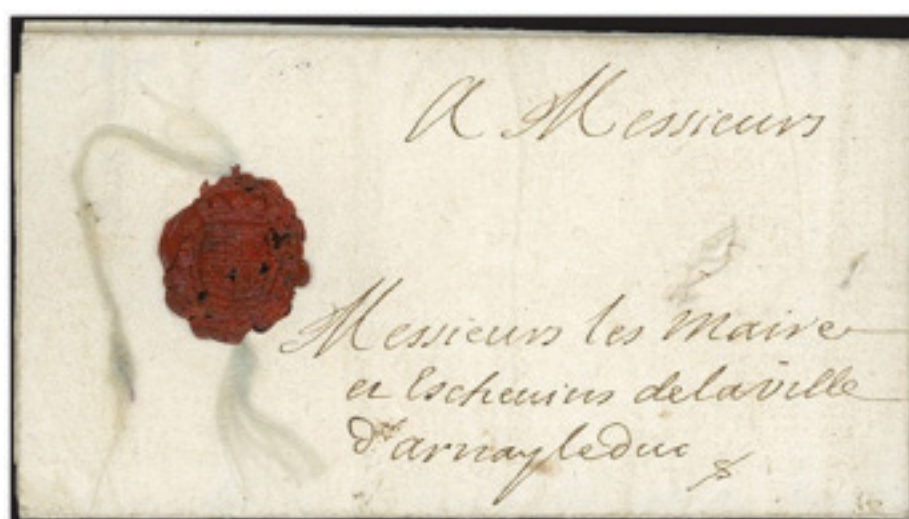 A Messieurs
Messieurs les Maire
et Eschevins delaville
d'arnayleduc